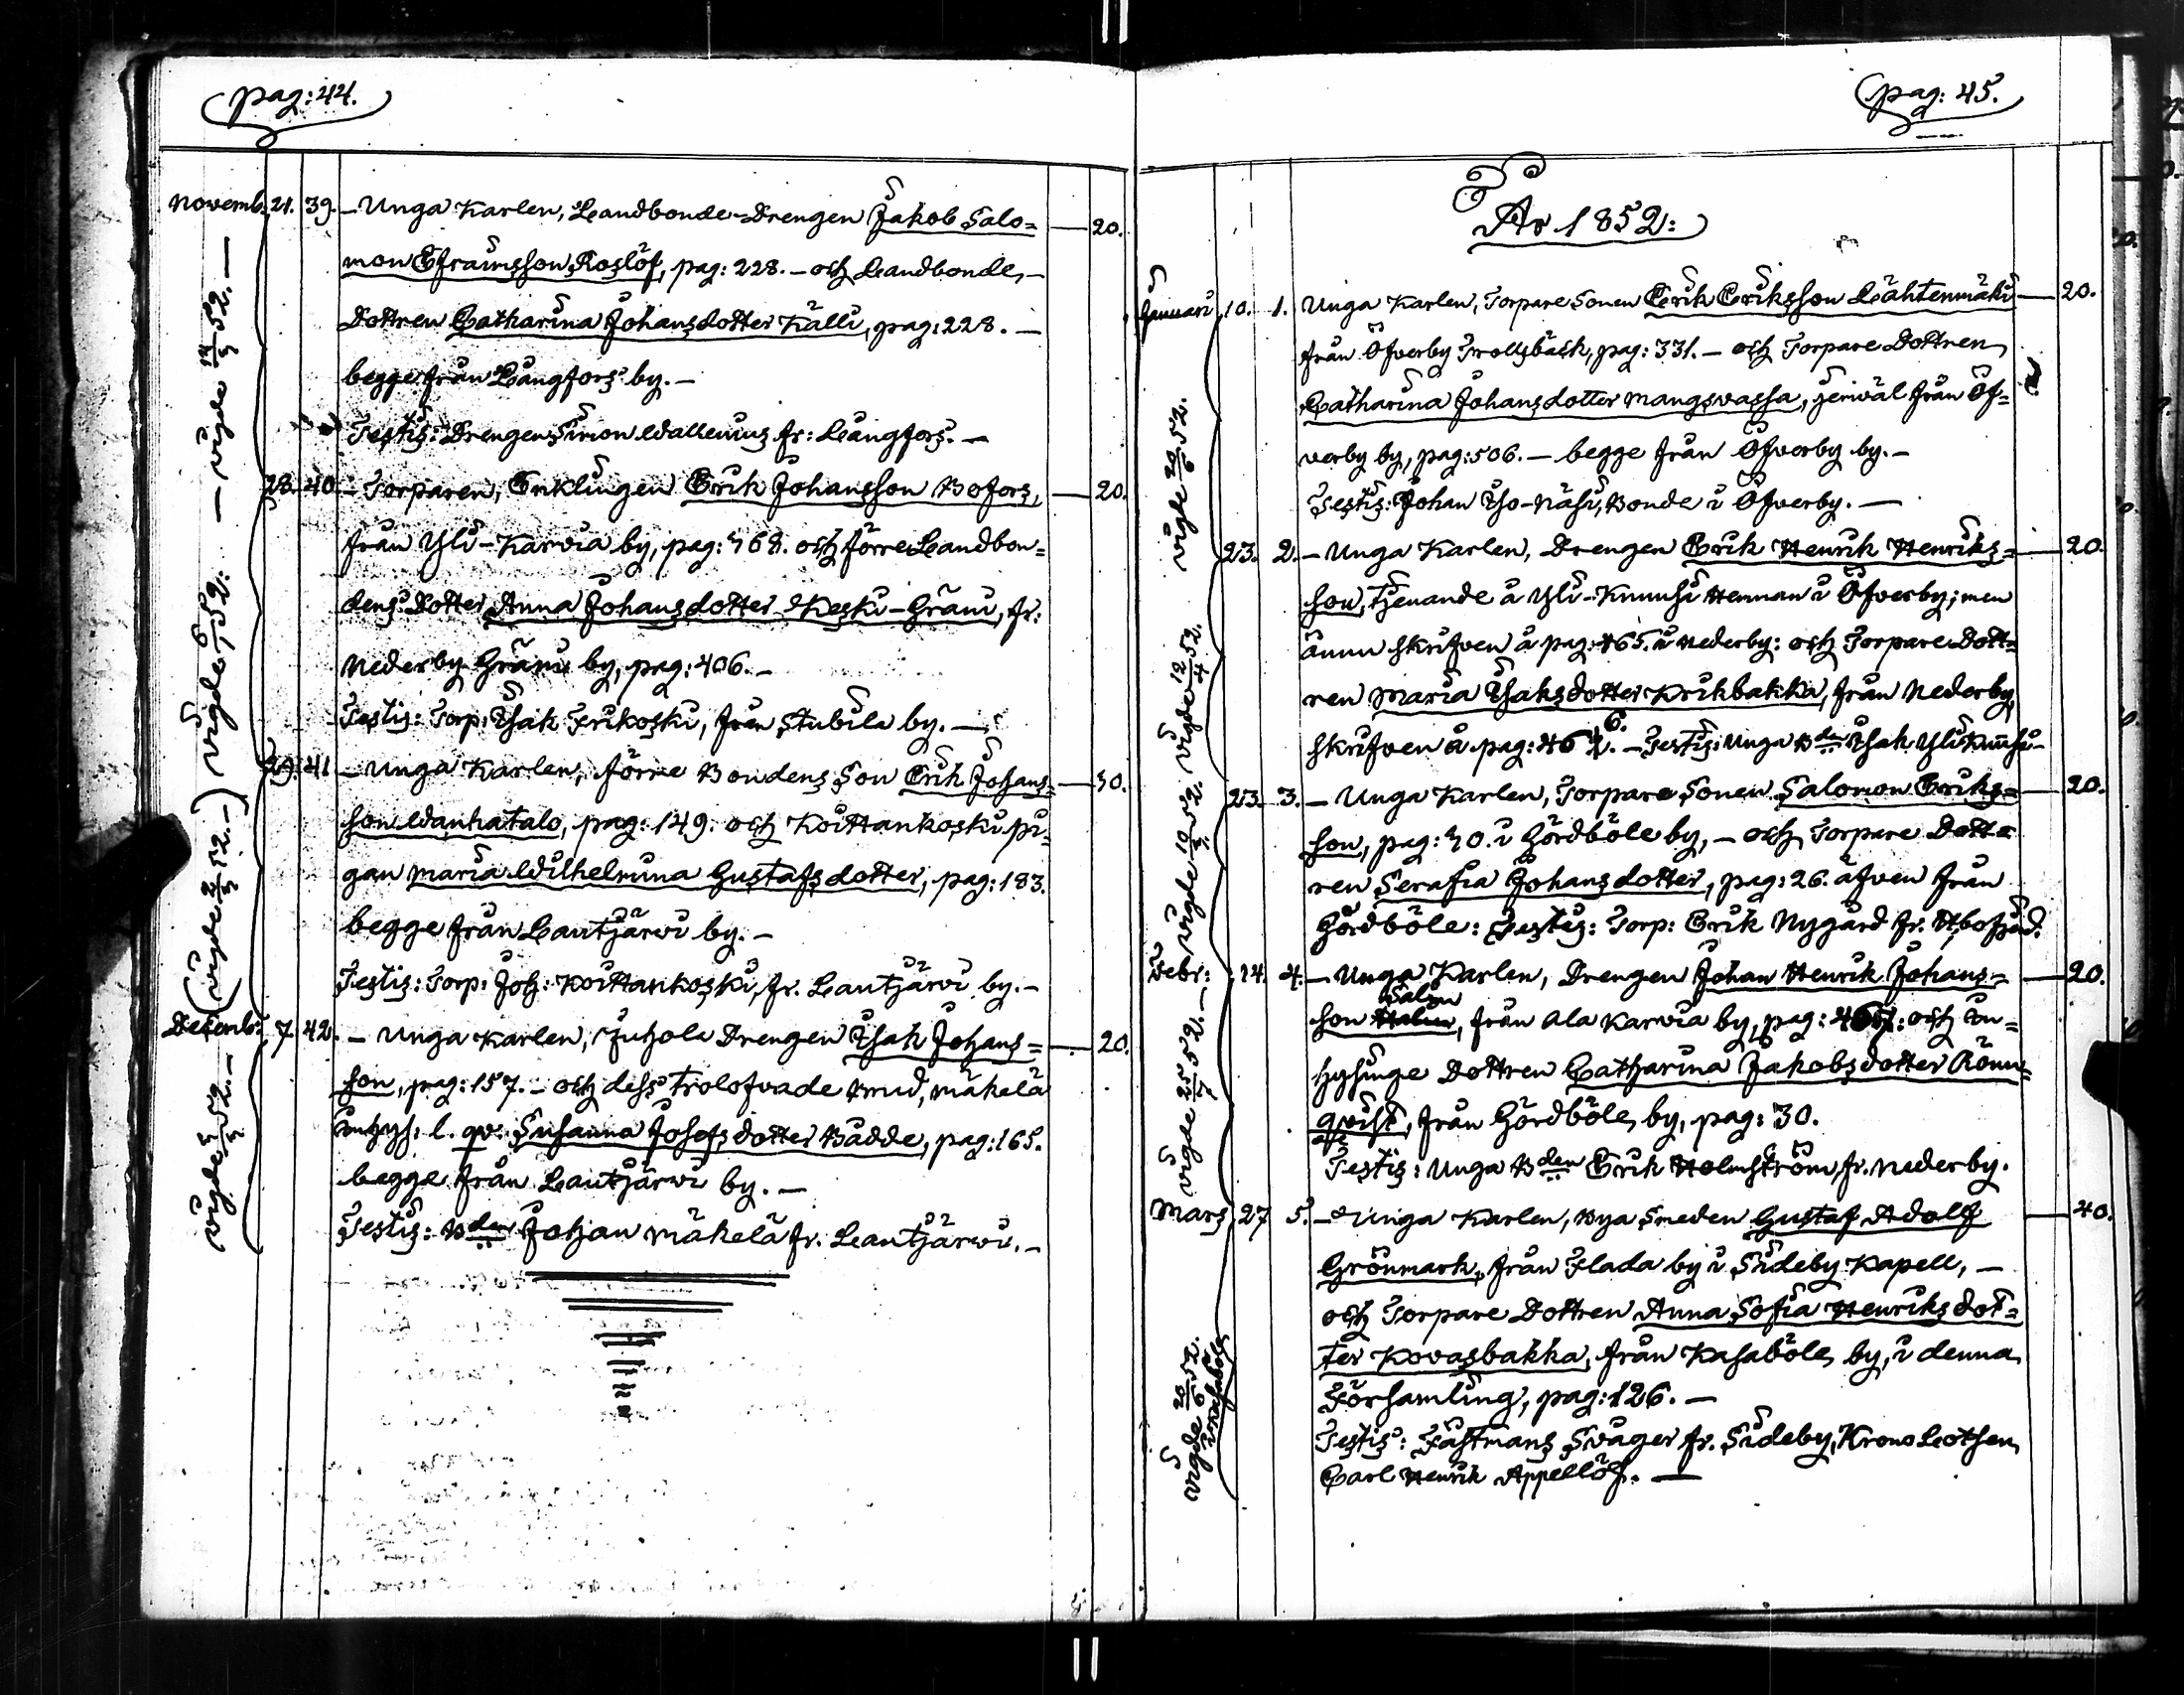 pag: 44.
Novemb. 21. 39. – Unga Karlen, Landbonde-Drengen Jakob Salo= — 20.
mon Efraimsson Roslöf, pag: 228. – och Landbonde, –
Dottren Catharina Johansdotter Källi, pag: 228. –
begge från Långfors by. –
Testis: Drengen Simon Wallenius fr: Långfors. –
28. 40. – Torparen, Enklingen Erik Johansson Bofors, — 20.
från Yli-Karvia by, pag: 468. och förre Landbon=
dens Dotter Anna Johansdotter Keski-Gräni, fr:
Nederby Gräni by, pag: 406. –
Testis: Torp: Isak Frikoski, från Stubila by. –
29. 41. – Unga Karlen, förre Bondens Son Erik Johans= — 50.
son Wanhatalo, pag: 149: och Koittankoski pi=
gan Maria Wilhelmina Gustafsdotter, pag: 183.
begge från Lautjärvi by. –
Testis: Torp: Joh: Koittankoski, fr. Lautjärvi by. –
Decemb. 7. 42. – Unga Karlen, Juhola Drengen Isak Johans= — 20.
son, pag: 157. – och dess trolofvade brud, Mäkelä
inhys: l. qv: Susanna Josefsdotter Bådde, pag: 165.
begge från Lautjärvi by. –
Testis: Bden Johan Mäkelä fr. Lautjärvi. –
vigde 52. – (vigde 52. –) vigde 52: – vigde 52. –
pag: 45.
År 1852:
Januari 10. 1. Unga Karlen, Torpare Sonen Erik Eriksson Lähtenmäki — 20.
från Öfverby Trollsbäck, pag: 331. – och Torpare Dottren
Catharina Johansdotter Mangsvassa, jemväl från Öf=
verby by, pag: 506. – begge från Öfverby by. –
Testis: Johan Iso-Näsi, Bonde i Öfverby. –
23. 2. – Unga Karlen, Drengen Erik Henrik Henriks= — 20.
son, tjenande å Yli-Knuusi Hemman i Öfverby; men
ännu skrifven å pag: 465. i Nederby: och Torpare Dott=
ren Maria Isaksdotter Krikbakka, från Nederby,
skrifven å pag: 466. – Testis: Unga Bden Isak Yli Knuusi –
23. 3. – Unga Karlen, Torpare Sonen Salomon Eriks= — 20.
son, pag: 40. i Hördböle by, – och Torpare Dott=
ren Serafia Johansdotter, pag: 26. äfven från
Hördböle: Testis: Torp: Erik Nygård fr.
Febr: 14. 4. – Unga Karlen, Drengen Johan Henrik Johans= — 20.
Salm
son, från Ala Karvia by, pag: och In=
hysinge Dottren Catharina Jakobsdotter Rönn=
qvist, från Hördböle by, pag: 30.
Testis: Unga Bden Erik Holmström fr. Nederby.
Mars 27. 5. – Unga Karlen, Bya Smeden Gustaf Adolf — 40.
Grönmark, från Flada by i Sideby Kapell, –
och Torpare Dottren Anna Sofia Henriksdot=
ter Kovasbakka, från Kasaböle by, i denna
Församling, pag: 126. –
Testis: Fästmans Svåger fr. Sideby, Krono Lotsen
Carl Henrik Appellöf. –
vigde 20/6 52.
vigde 12/4 52.
vigde 10/ 52.
vigde 25/7 52. –
vigde 20/6 52.
i Kasaböle